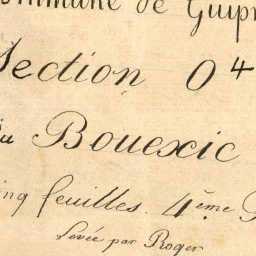 ommune de Guip
Section O 4
du Bouexic
inq feuilles. 4ème
Levée par Roger